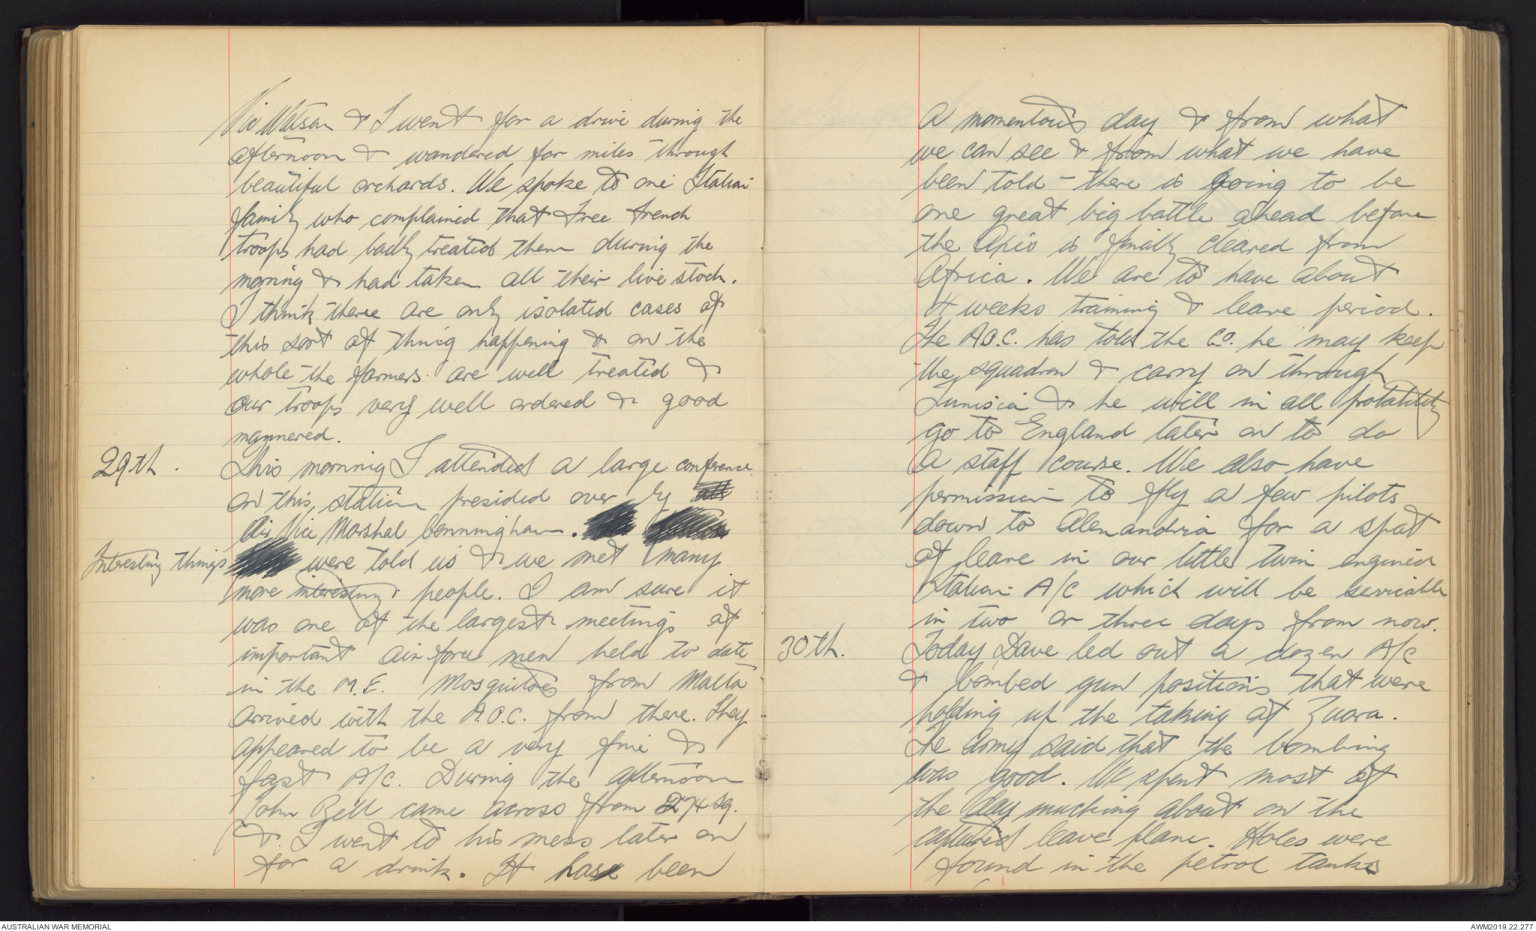 Vic Watson & I went for a drive during the
afternoon & wandered for miles through
beautiful orchards. We spoke to one Italian
family who complained that Free French
troops had badly treated them during the
morning & had taken all their live stock.
I think there are only isolated cases of
this sort of thing happening & on the
whole the farmers are well treated &
our troops very well ordered & good
mannered.
29th. This morning I attended a large conference
on this station presided over by
Air Vice Marshal Conningham.
Interesting things were told us & we met many
more interesting people. I am sure it
was one of the largest meetings of
important air force men held to date
in the M.E. Mosquitoes from Malta
arrived with the A.O.C. from there. They
appeared to be a very fine &
fast A/C. During the afternoon
John Bell came across from 274 Sq.
& I went to his mess later on
for a drink. It has been
a momentous day & from what
we can see & from what we have
been told - there is going to be
one great big battle ahead before
the Axis is finally cleared from
Africa. We are to have about
4 weeks training & leave period.
The A.O.C. has told the C.O. he may keep
the squadron & carry on through
Tunisia & he will in all probability
go to England later on to do
a staff course. We also have
permission to fly a few pilots
down to Alexandria for a spot
of leave in our little twin engined
Italian A/C which will be servicable
in two or three days from now.
30th. Today Dave led out a dozen A/C
& bombed gun positions that were
holding up the taking of Zuara.
The Army said that the bombing
was good. We spent most of
the day mucking about on the
captured leave plane. Holes were
found in the petrol tanks
AUSTRALIAN WAR MEMORIAL
AWM2019.22.277